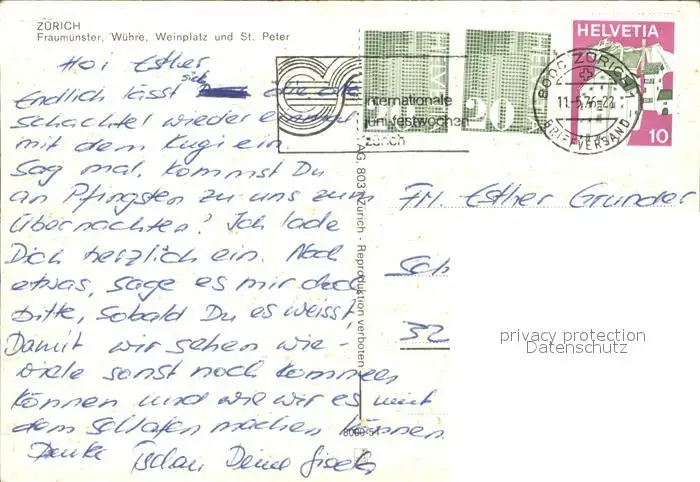 ZÜRICH
Fraumünster, Wühre, Weinplatz und St. Peter
Hoi Esther
Endlich lässt sich die alte
Schachtel wieder einmal
mit dem Kugi ein
Sag mal, kommst Du
an Pfingsten zu uns zum
übernachten? Ich lade
Dich herzlich ein. Noch
etwas, sage es mir doch
bitte, sobald Du es weisst,
Damit wir sehen wie-
viele sonst noch kommen
können und wie wir es mit
dem schlafen machen können
Danke Tschau Deine Gisela
AG, 8031 Zürich - Reproduktion verboten
8000-54
internationale
juni-festwochen
zürich
HELVETIA
20
HELVETIA
20
HELVETIA
10
8000 ZÜRICH
11.-5.76.-22
BRIEFVERSAND
Frl. Esther Grunder
Sch
32
privacy protection
Datenschutz